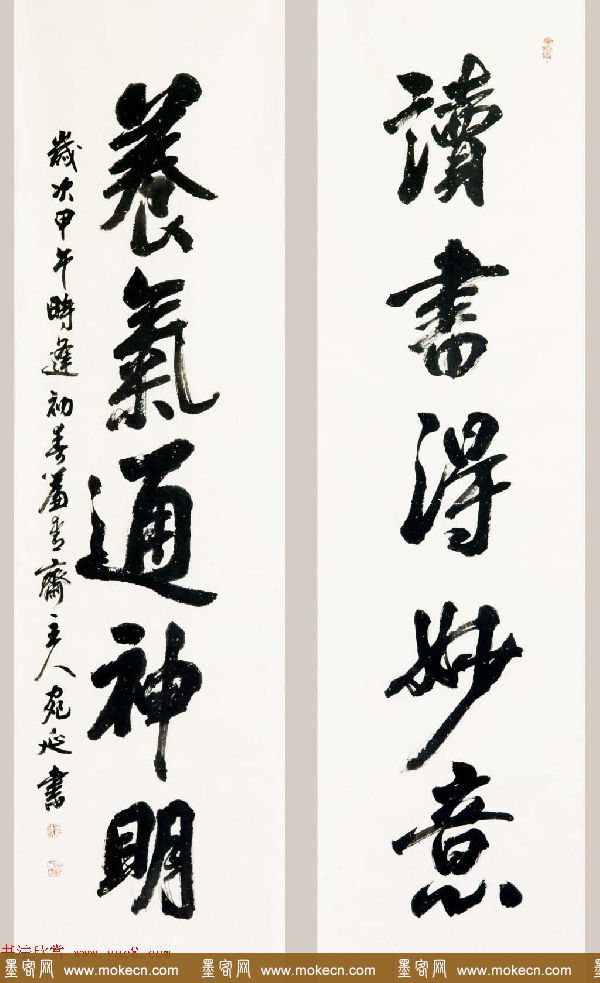 讀書得妙意
養氣通神明
歲次甲午時逢初春青齋主人宛延書
书法欣赏
墨客网 www.mokecn.com 墨客网 www.mokecn.com 墨客网 www.mokecn.com